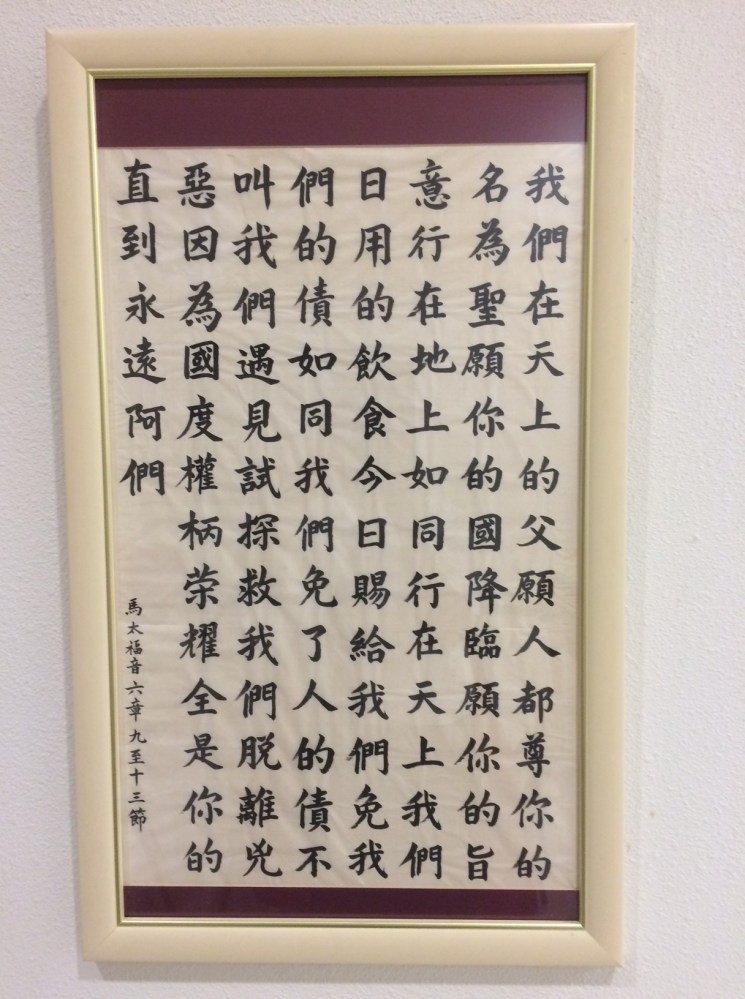 我們在天上的父願人都尊你的
名為聖願你的國降臨願你的旨
意行在地上如同行在天上我們
日用的飲食今日賜給我們免我
們的債如同我們免了人的債不
叫我們遇見試探救我們脫離兇
惡因為國度權柄荣耀全是你的
直到永遠阿們
馬太福音六章九至十三節